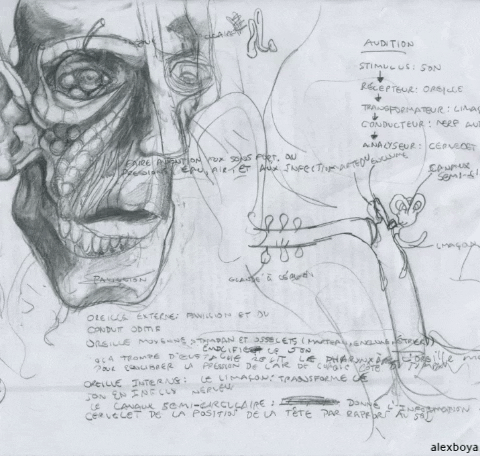 AUDITION
STIMULUS: SON
RÉCEPTEUR: OREILLE
TRANSFORMATEUR: LIMAÇ
CONDUCTEUR: NERF AU
ANALYSEUR: CERVEAU
FAIRE ATTENTION AUX SONS FORT, AU
PRESSIONS (EAU, AIR) ET AUX INFECTION
CANAUX
SEMI-
LIMAÇON
PAVILLION
GLANDE À CÉRUMEN
OREILLE EXTERNE: PAVILLION ET DU
CONDUIT
OREILLE MOYENNE: TYMPAN ET OSSELETS (MARTEAU, ENCLUME, ÉTRIER)
AMPLIFIE LE SON
LA TROMPE D'EUSTACHE LE PHARYNX L'OREILLE
POUR ÉQUILIBRER LA PRESSION DE L'AIR DE CHAQUE CÔTÉ DU TYMPAN
OREILLE INTERNE: LE LIMAÇON TRANSFORME LE
SON EN INFLUX NERVEUX
LE CANAUX SEMI-CIRCULAIRE: DONNE L'INFORMATION
CERVELET DE LA POSITION DE LA TÊTE PAR RAPPORT AU SOL
alexboya